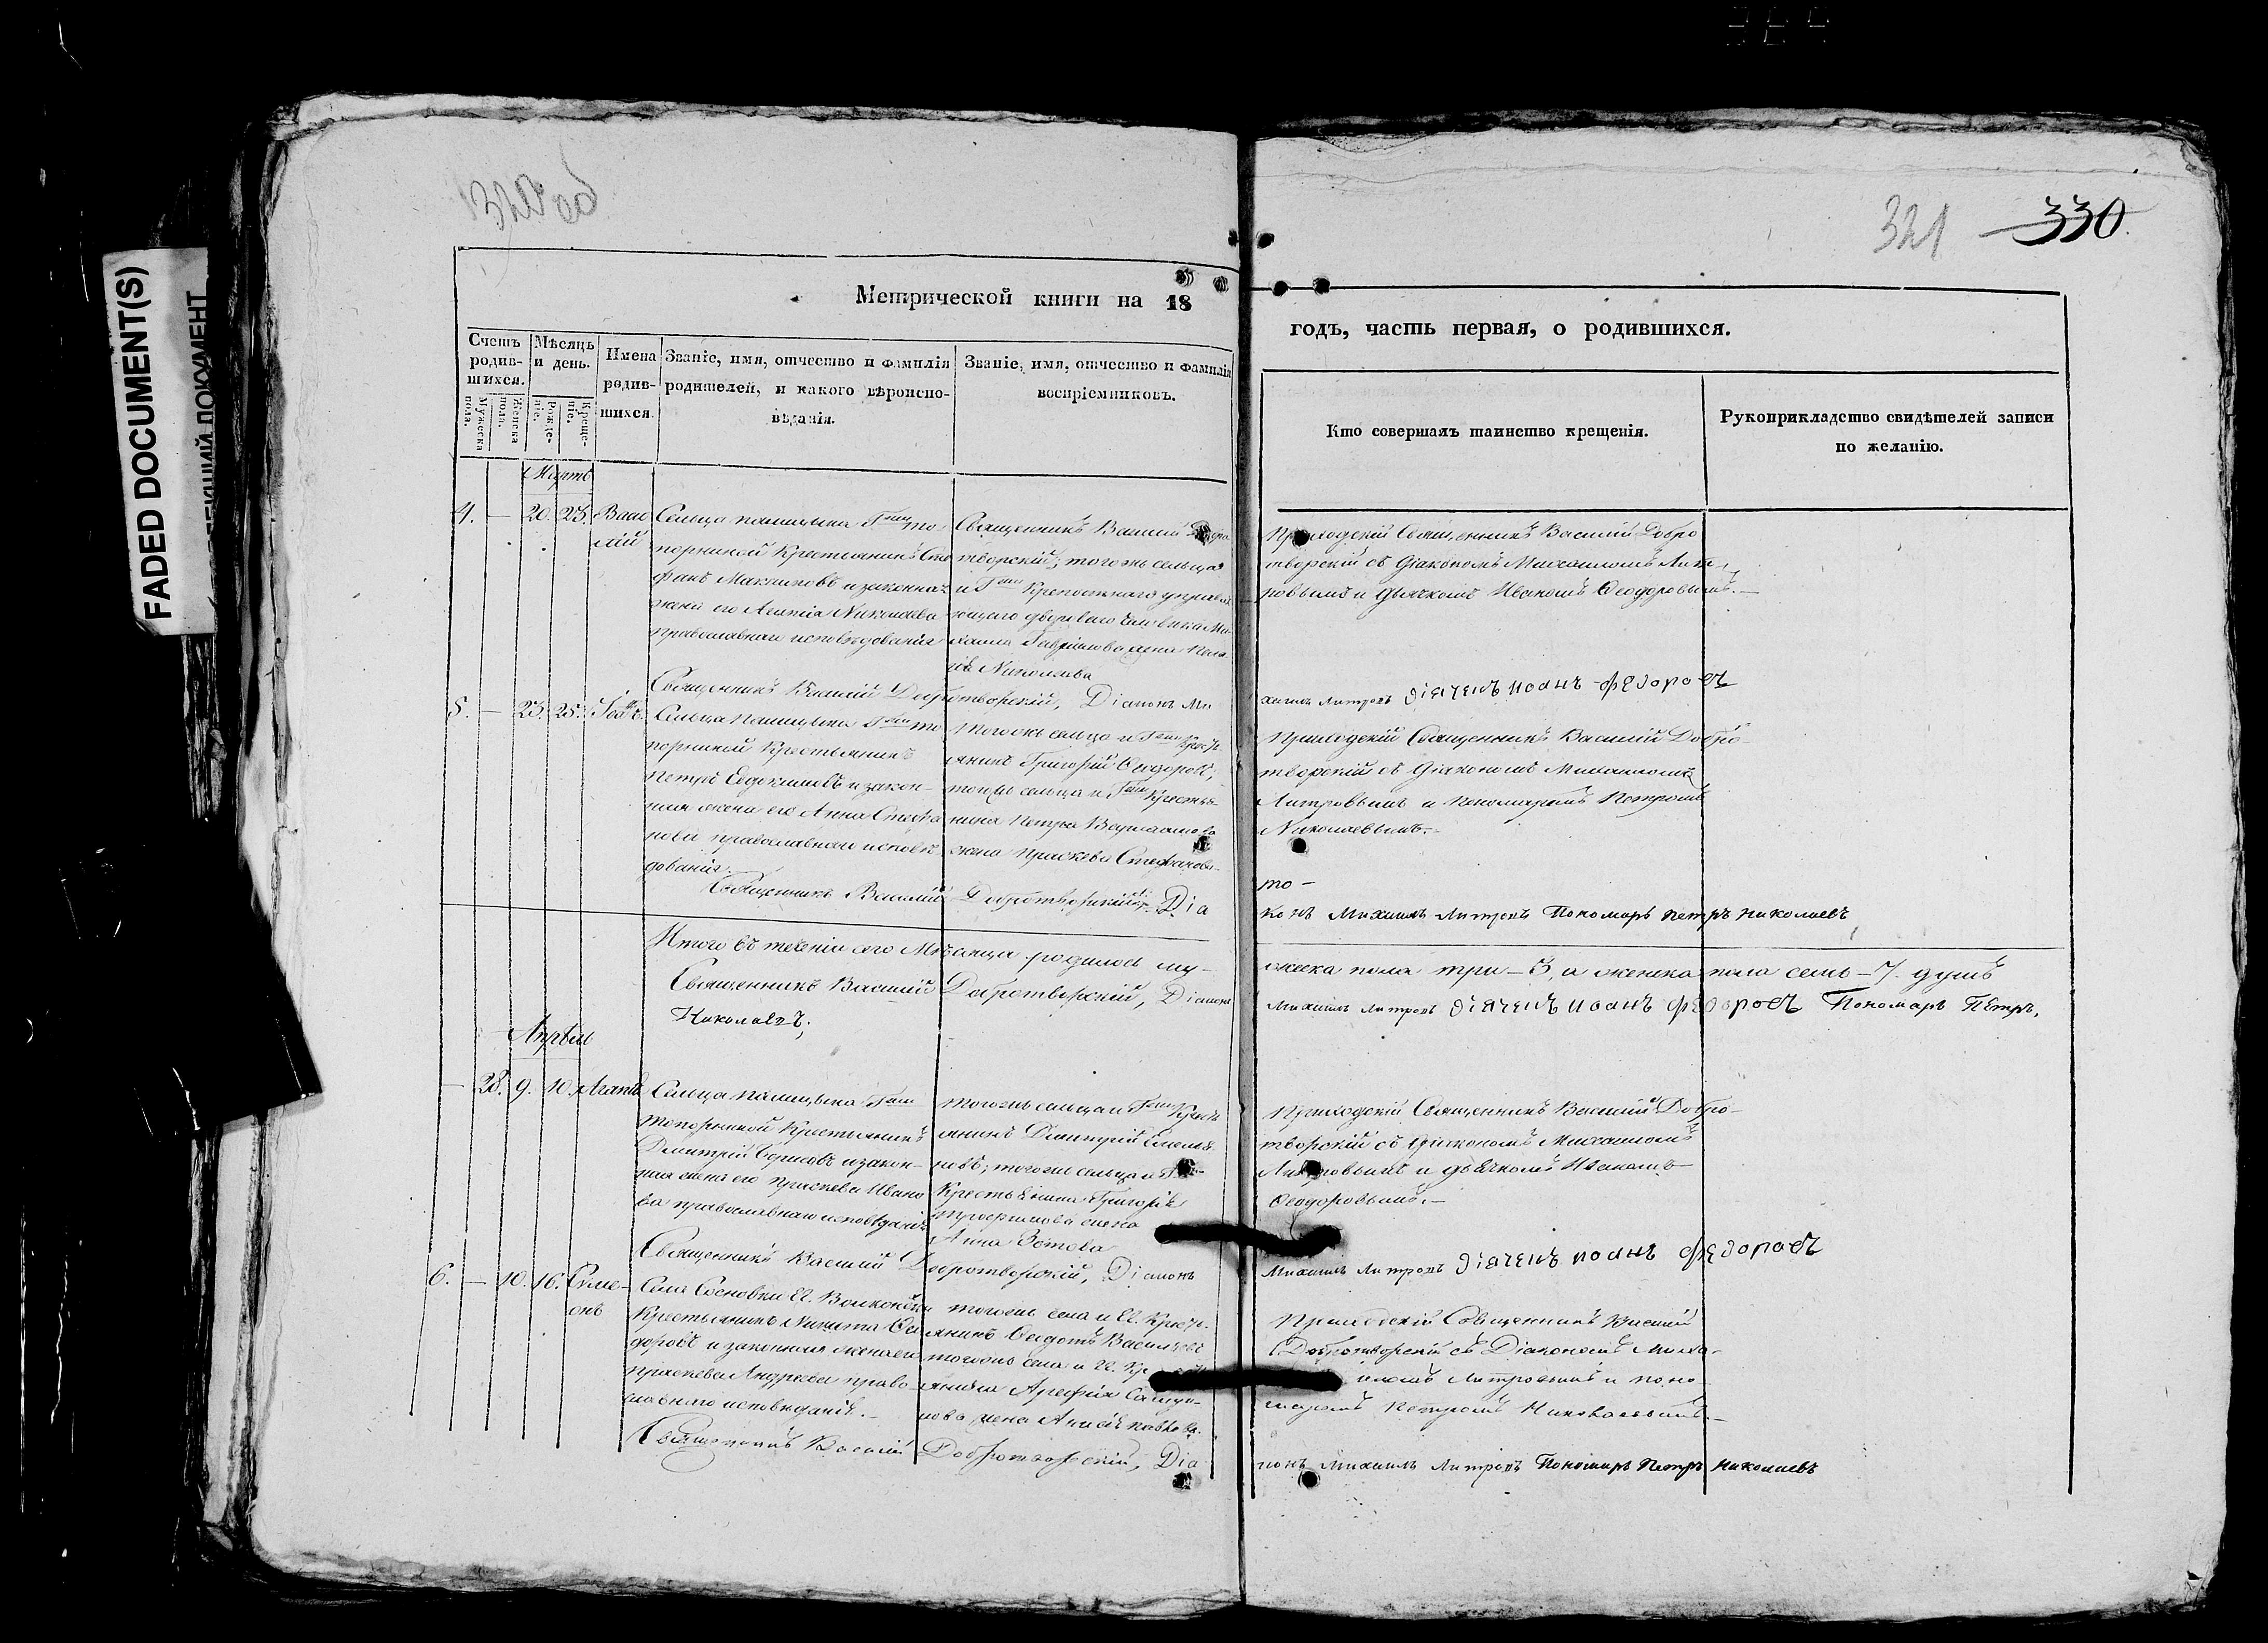 FADED DOCUMENT(S)
321 330.
Метрической книги на 18
годъ, часть первая, о родившихся.
Счетъ родив-шихся.
Мужеска пола.
Женска пола.
Мѣсяцъ и день.
Рожде-нiе.
Креще-нiе.
Имена родив-шихся.
Званiе, имя, отчество и фамилiя
родителей, и какого вѣроиспо-
вѣданiя.
Званiе, имя, отчество и фамилiя
воспрiемниковъ.
Кто совершалъ таинство крещенiя.
Рукоприкладство свидѣтелей записи
по желанiю.
Мартъ
4. — 20. 23. Васи
лiй
Сельца
порниной Крестьянинъ Сте
фанъ Максимовъ и законная
жена его Агатiя Николаева
православнаго исповѣдованiя
Священникъ Василiй Добро
творскiй; тогожъ сельца
и Крепостнаго управля
ющаго двороваго человека Ми
хаила Гаврилова жена
Николаева
Приходскiй Священникъ Василiй Добро
творскiй съ Дiакономъ Михаиломъ Лит
ровымъ и Дьячкомъ Иваномъ Ѳеодоровымъ.—
Священникъ Василiй Добротворскiй, Дiаконъ Ми
хаилъ Литровъ дiячекъ иоанъ федоровъ
5. — 23. 25.
Сельца
порниной Крестьянинъ
Петръ Евдокимовъ и закон-
ная жена его Анна Стефа
нова православнаго исповѣ
дованiя.
тогожъ сельца и Крестья
янинъ Григорiй Ѳеодоровъ;
тогожъ сельца и Крестья-
нина Петра
жена Праскева Стефанова.
Приходскiй Священникъ Василiй Добро-
творскiй съ Дiакономъ Михаиломъ
Литровымъ и Пономаремъ Петромъ
Николаевымъ.—
Священникъ Василiй Добротворскiй, Дiа
конъ Михаилъ Литровъ Пономарь Петръ Николаевъ
Итого въ теченiи сего Мѣсяца родилось му-
жеска пола три — 3, а женска пола семь — 7 душъ
Священникъ Василiй Добротворскiй, Дiаконъ
Михаилъ Литровъ дiячекъ иоанъ федоровъ Пономарь Петръ,
Николаевъ;
Апрѣль
— 28. 9. 10. Агапiя
Сельца
топорниной Крестьянинъ
Димитрiй Борисовъ и закон-
ная жена его Праскева Ивано
ва православнаго исповѣданiя
тогожъ сельца и Крестья
янинъ Димитрiй Емелья
новъ; тогожъ сельца и
Крестьянина Григорiя
Трофимова жена
Анна Зотова
Приходскiй Священникъ Василiй Добро-
творскiй съ Дiакономъ Михаиломъ
Литровымъ и дьячкомъ Иваномъ
Ѳеодоровымъ.—
Священникъ Василiй Добротворскiй, Дiаконъ
Михаилъ Литровъ дiячекъ иоанъ федоровъ
6. — 10. 16. Симе-
онъ
Села Сосновки
Крестьянинъ Никита Ѳе
доровъ и законная жена его
Праскева Андреева право
славнаго исповѣданiя.—
тогожъ села и Крестья
янинъ Ѳедотъ Васильевъ
тогожъ села и
янина
жена
Приходскiй Священникъ Василiй
Добротворскiй съ Дiакономъ Миха-
иломъ Литровымъ и поно
маремъ Петромъ Николаевымъ.—
Священникъ Василiй Добротворскiй, Дiа
конъ Михаилъ Литровъ Пономарь Петръ Николаевъ